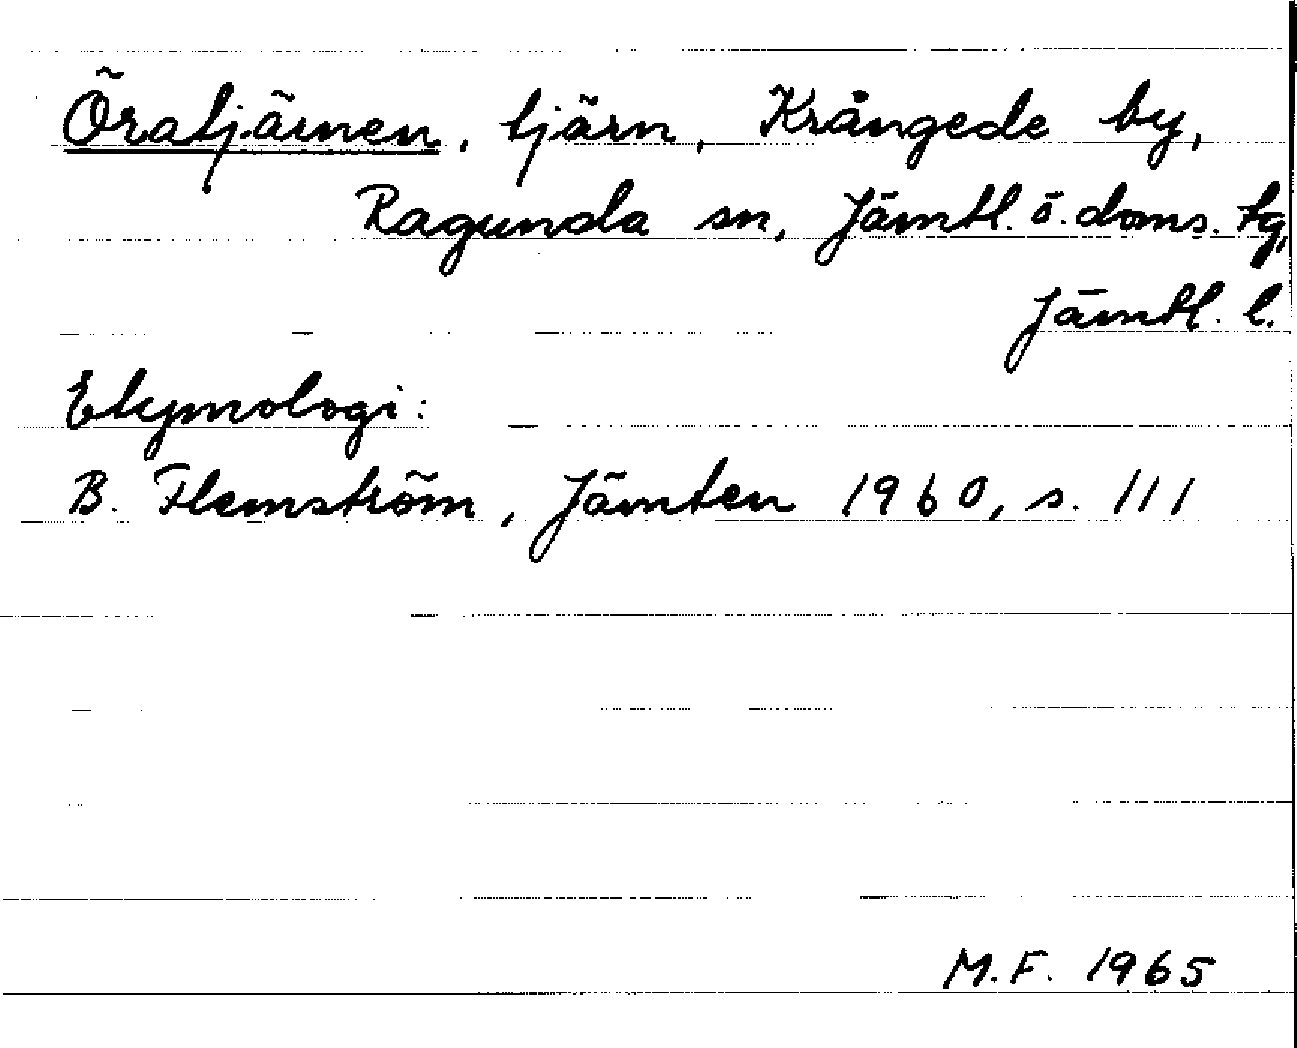 Öratjärnen, tjärn, Krångede by,
Ragunda sn, Jämtl. ö. doms. tg,
Jämtl. l.
Etymologi:
B. Flemström, Jämten 1960, s. 111
M.F. 1965